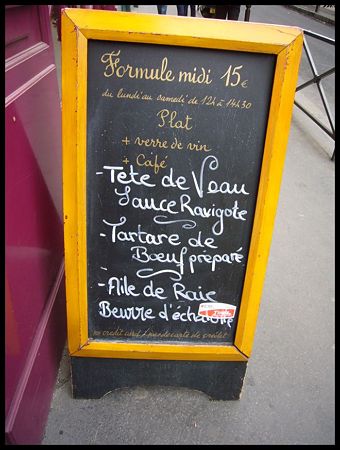 Formule midi 15€
du lundi au samedi de 12h à 14h30
Plat
+ verre de vin
+ Café
- Tête de Veau
Sauce Ravigote
- Tartare de
Boeuf préparé
- Aile de Raie
Beurre d'échalotte
no credit card / pas de carte de crédit